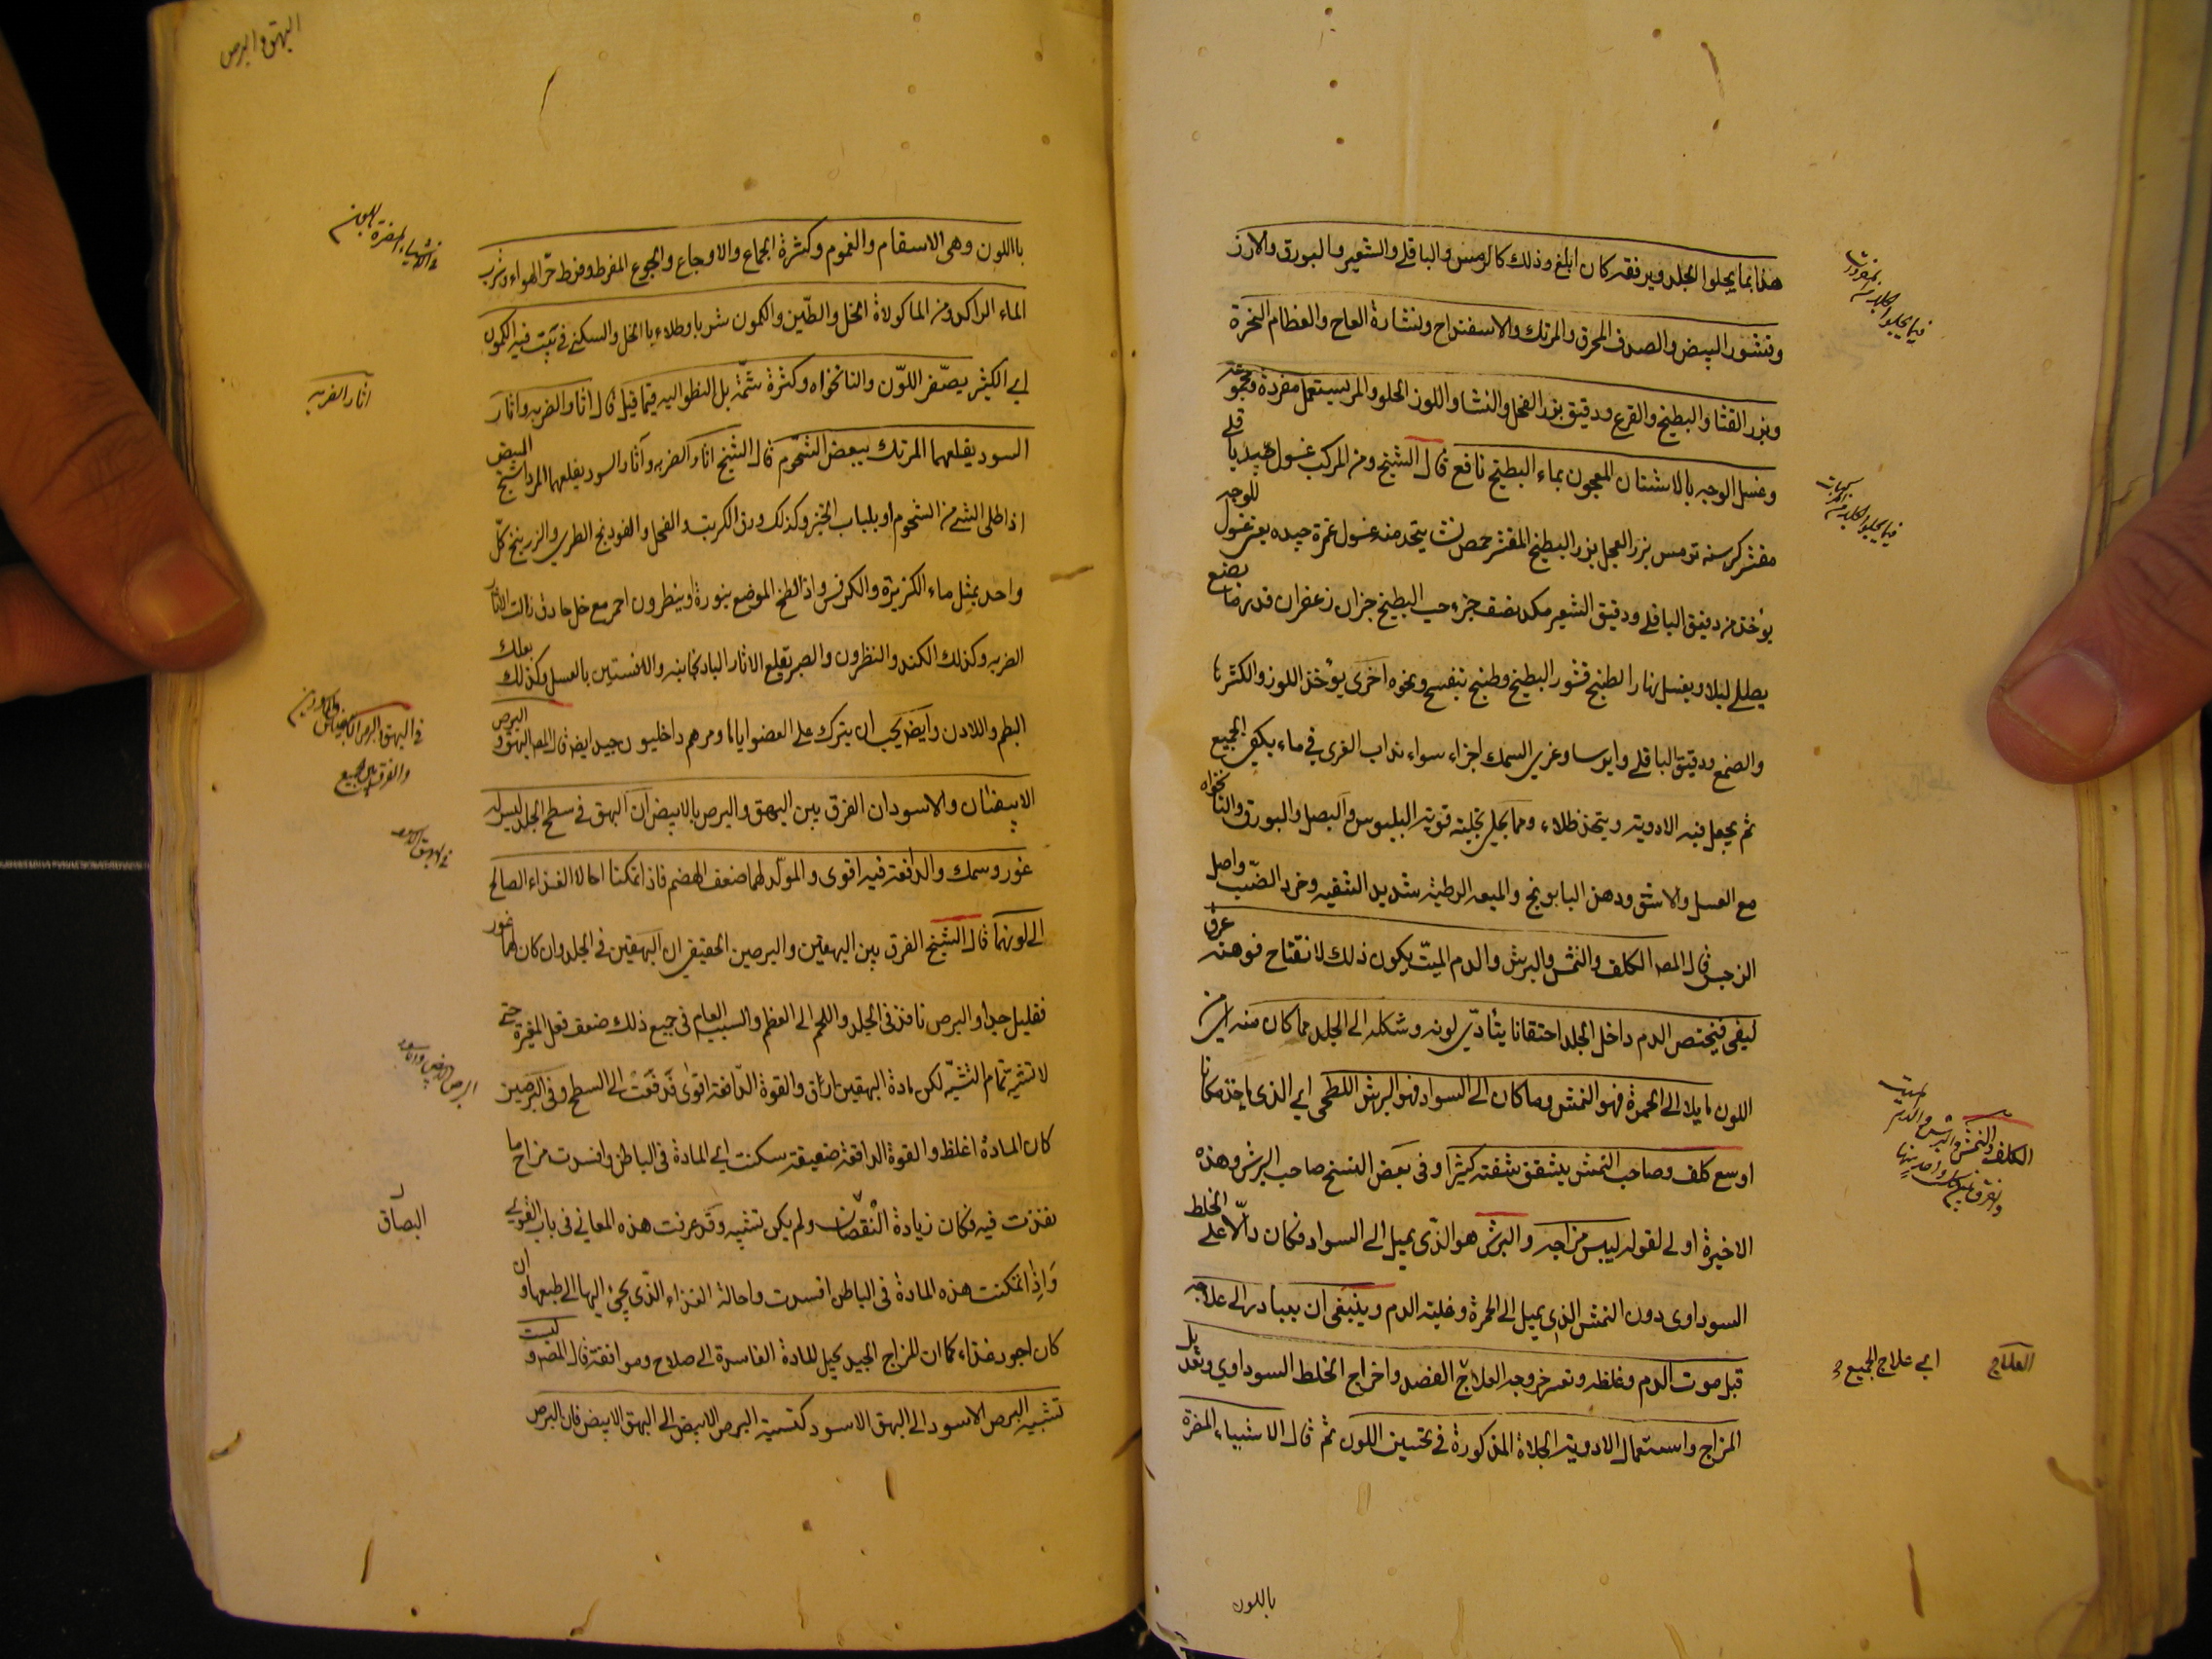 هذا بما يجلوا الجلد ويرفقه كان ابلغ وذلك كالترمس والباقلى والشعير والبورق والارز
وقشور البيض والصدف المحرق والمرتك والاسفتداج ونشارة العاج والعظام النخرة
وبزر القثا والبطيخ والقرع ودقيق بزر الفجل والنشا واللوز الحلو والمر يستعمل مفردة ومجموعة
وغسل الوجه بالاشنان المعجون بماء البطيخ نافع قال الشيخ ومن المركب غسول جيد باقلى
مقشر كرسنه ترمس بزر الفجل بزر البطيخ المقشر حمص نشا يتخذ منه غسول غمرة جيده يعني غسول للوجه
يؤخذ من دقيق الباقلى ودقيق الشعير مكد نصف جزء حب البطيخ جزان زعفران قدر ما يصنع
يطلى ليلا ويغسل نهارا بطبيخ قشور البطيخ وطبيخ بنفسج ونحوه اخرى يؤخذ اللوز والكثيرا
والصمغ ودقيق الباقلى وايرسا وغري السمك اجزاء سواء يذاب الغرى في ماء يكفي الجميع
ثم يجعل فيه الادوية ويتخذ طلاء ومما يجلى تجلية قوية البلبوس والبصل والبورق والنانخواه
مع العسل والاشق ودهن البابونج والميعه الرطبة شديد التنقيه وخرء الضب واصل
النرجس قال المصـ الكلف والنمش والبرش والدم الميت يكون ذلك لانفتاح فوهة عرق
ليفي فيحتقن الدم داخل الجلد احتقانا يتأدى لونه وشكله الى الجلد مما كان منه
اللون مايلا الى الحمرة فهو النمش وما كان الى السواد فهو البرش اللطخى اي الذي ياخذ مكانا
اوسع كلف وصاحب النمش يتشقق شفته كثيرا وفى بعض النسخ صاحب البرش وهذه
الاخيرة اولى لقوله ليبس مزاجه والبرش هو الذى يميل الى السواد فكان دالا على الخلط
السوداوى دون النمش الذي يميل الى الحمرة وغلبة الدم وينبغى ان يبادر الى علاجه
قبل موت الدم وغلظه وتعسر خروجه العلاج الفصد واخراج الخلط السوداوي وتعديل
المزاج واستعمال الادوية الجلاة المذكورة في تحسين اللون ثم قال الاشياء المضرة
باللون
فيما يجلوا الجلد من المفردات
فيما يجلوا الجلد من المركبات
الكلف والنمش والبرش والدم الميت
والفرق بين كل واحد منها
العلاج
اي علاج الجميع
البهق والبرص
بااللون وهى الاسقام والغموم وكثرة الجماع والاوجاع والجوع المفرط وفرط حر الهواء وشرب
الماء الراكد ومن الماكولاة الخل والطين والكمون شربا وطلاء بالخل والسكنى في بيت فيه الكمون
اي الكثير يصفر اللون والنانخواه وكثرة شمه بل النظر اليه فيما قيل قال اثار الضربه واثار
السود يقلعهما المرتك ببعض الشحوم قال الشيخ اثار الضربه وآثار السود يقلعها المرداسنج المبيض
اذا طلى الشي من الشحوم او بلباب الخبز وكذلك ورق الكرنب والفجل والفودنج الطري والزرنيخ كل
واحد بمثل ماء الكزبرة والكرفس واذا لطخ الموضع بنورة او بنطرون احمر مع خل حاذق زالت الاثار
الضربه وكذلك الكندر والنطرون والصبر يقلع الاثار الباذنجانيه والافسنتين بالعسل وكذلك بعلك
البطم واللادن وايضا يجب ان يترك على العضو اياما ومرهم داخليون جيد ايضا قال المصـ البهق والبرص
الابيضان والاسودان الفرق بين البهق والبرص بالابيض ان البهق في سطح الجلد ليس له
غور وسمك والدافعة فيه اقوى والمولد لهما ضعف الهضم فاذا تمكنا احالا الغذاء الصالح
الى لونهما قال الشيخ الفرق بين البهقين والبرصين الحقيقي ان البهقين في الجلد وان كان لهما غور
فقليل جدا والبرص نافذ فى الجلد واللحم الى العظم والسبب العام فى جميع ذلك ضعف فعل المغيرة حتى
لا تشبه تمام التشبه لكن مادة البهقين ارق والقوة الدافعة اقوى فدفعت الى السطح وفى البرصين
كان المادة اغلظ والقوة الدافعة ضعيفة سكنت اي المادة فى الباطن وافسدت مزاج ما
نفذت فيه فكان زيادة النقصان ولم يكن تشبيه وقد عرفت هذه المعاني فى باب القوى
واذا تمكنت هذه المادة فى الباطن افسدت واحالة الغذاء الذى يجئ اليها الى طبعها وان
كان اجود غذاء كما ان المزاج الجيد يحيل المادة الفاسدة الى صلاح وموافقة قال المصـ وليست
تشبيه البرص الاسود الى البهق الاسود كتسمية البرص الابيض الى البهق الابيض فان البرص
في الاشياء المضرة باللون
اثار الضربه
في البهق والبرص الابيضان والاسودان
والفرق بين الجميع
البصاق